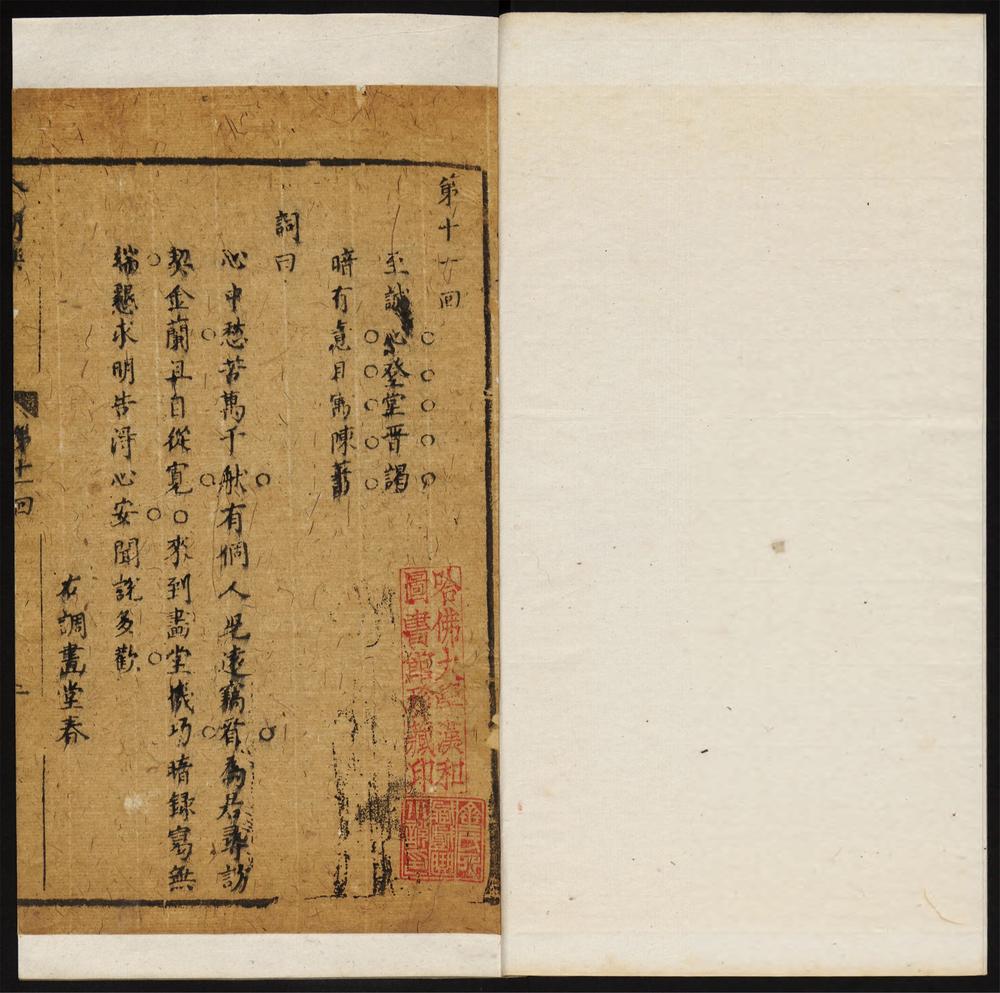 第十六回
至誠心登堂晋謁
暗有意且寓陳蕃
詞曰
心中愁苦萬千般有個人兒遠竊有為君尋訪
契金蘭且自從寬○來到畫堂機巧暗錄寫無
端懇求明告得心安聞說多歡
右調畫堂春
第十一回
哈佛大學漢和
圖書館珍藏印